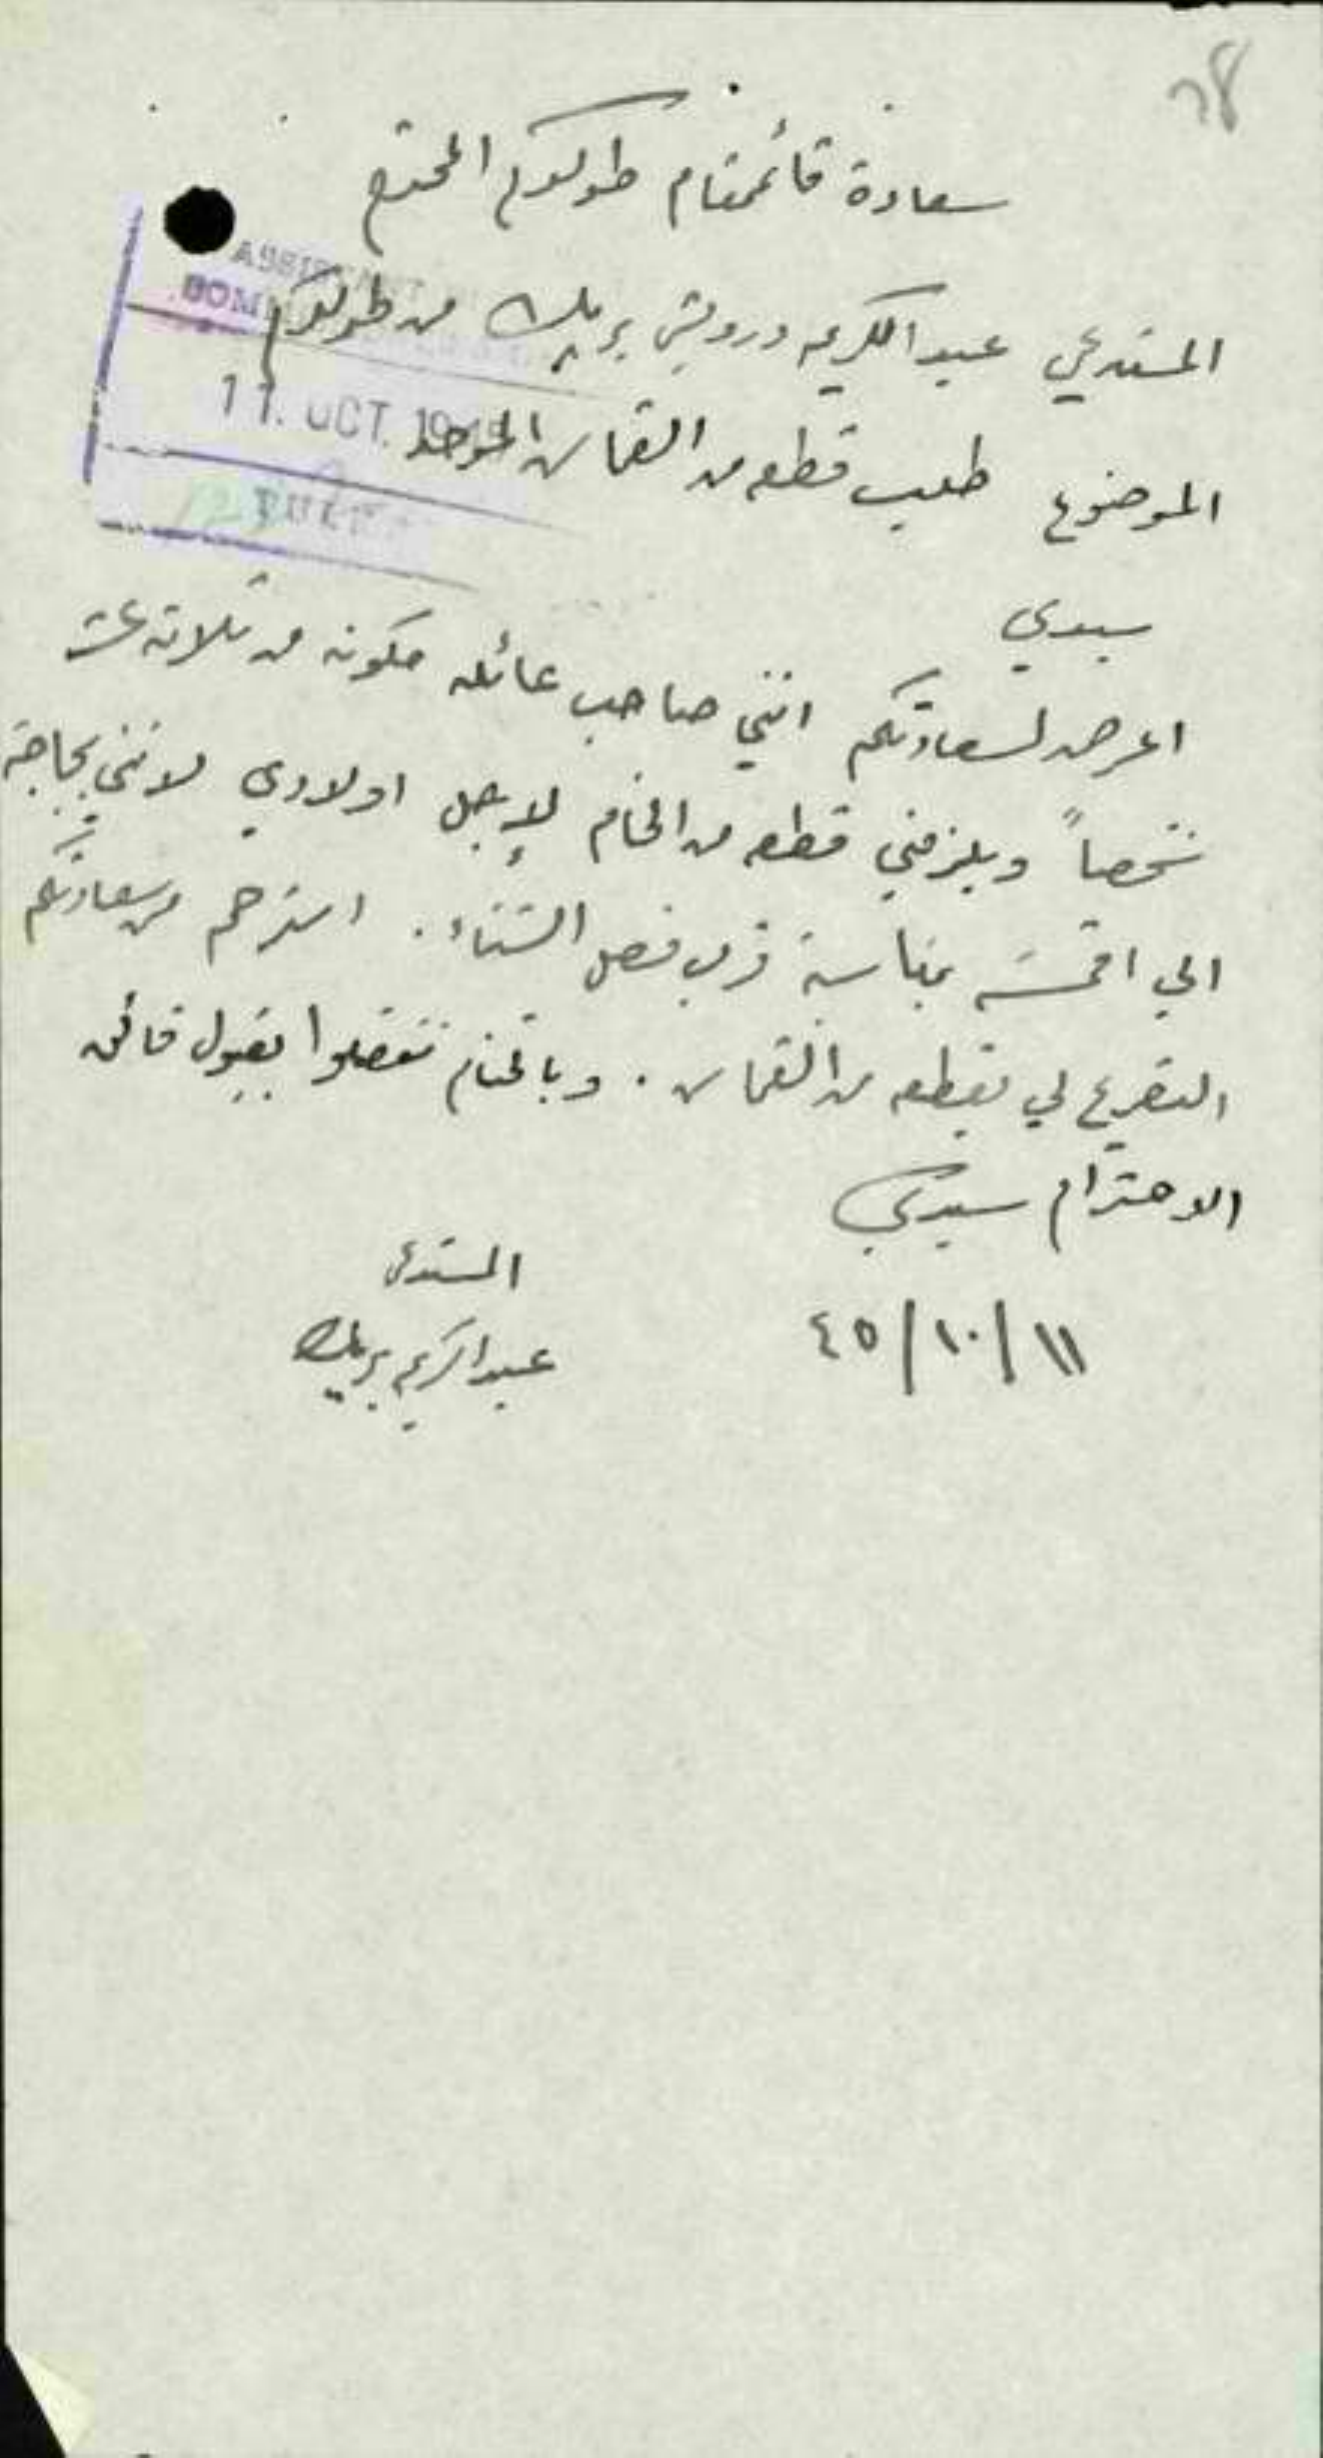 ٦٨
سعادة قائممقام طولكرم المحترم
المستدعي عبد الكريم درويش بريك من طولكرم
ASSISTANT
11. OCT. 19
الموضوع طلب قطعه من القماش الموحد
سيدي
اعرض لسعادتكم انني صاحب عائله مكونه من ثلاثة عشر
شخصاً ويلزمني قطعه من الخام لإجل اولادي لانني بحاجة
الي اقمشه بمناسبة قرب فصل الشتاء . استرحم من سعادتكم
التصريح لي بقطعه من القماش . وبالختام تفضلوا بقبول فائق
الاحترام سيدي
المستدعي
عبد الكريم بريك
١١/١٠/٤٥